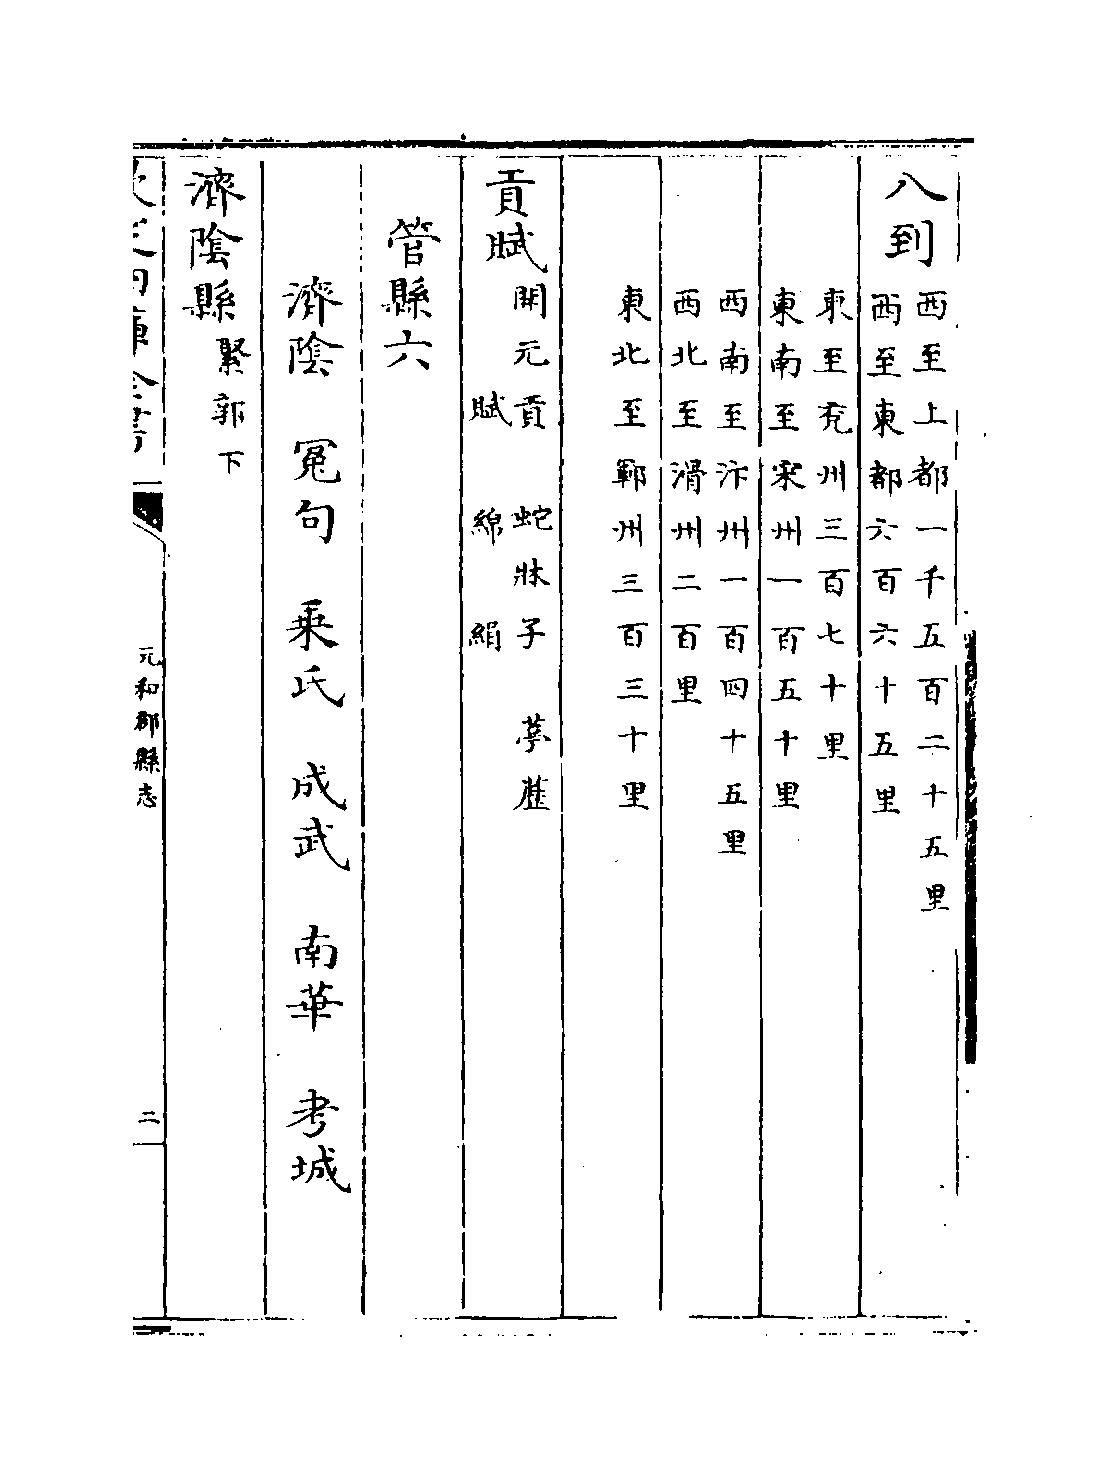 八到
西至上都一千五百二十五里
西至東都六百六十五里
東至兖州三百七十里
東南至宋州一百五十里
西南至汴州一百四十五里
西北至滑州二百里
東北至鄆州三百三十里
貢賦
開元貢 蛇牀子 葶藶
賦 綿 絹
管縣六
濟陰 冤句 乗氏 成武 南華 考城
濟陰縣
緊郭下
欽定四庫全書
元和郡縣志
二